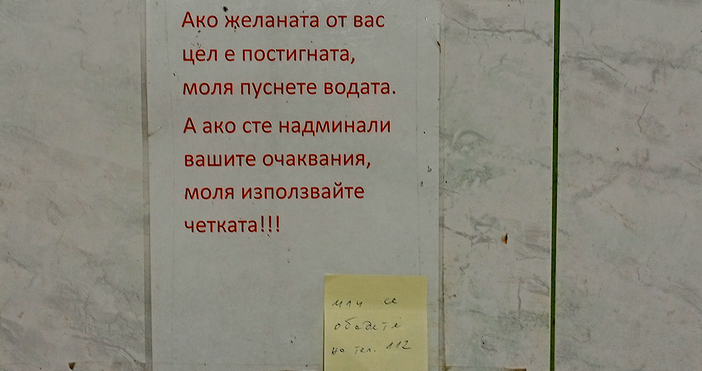 Ако желаната от вас
цел е постигната,
моля пуснете водата.
А ако сте надминали
вашите очаквания,
моля използвайте
четката!!!
или се
обадете
на тел. 112